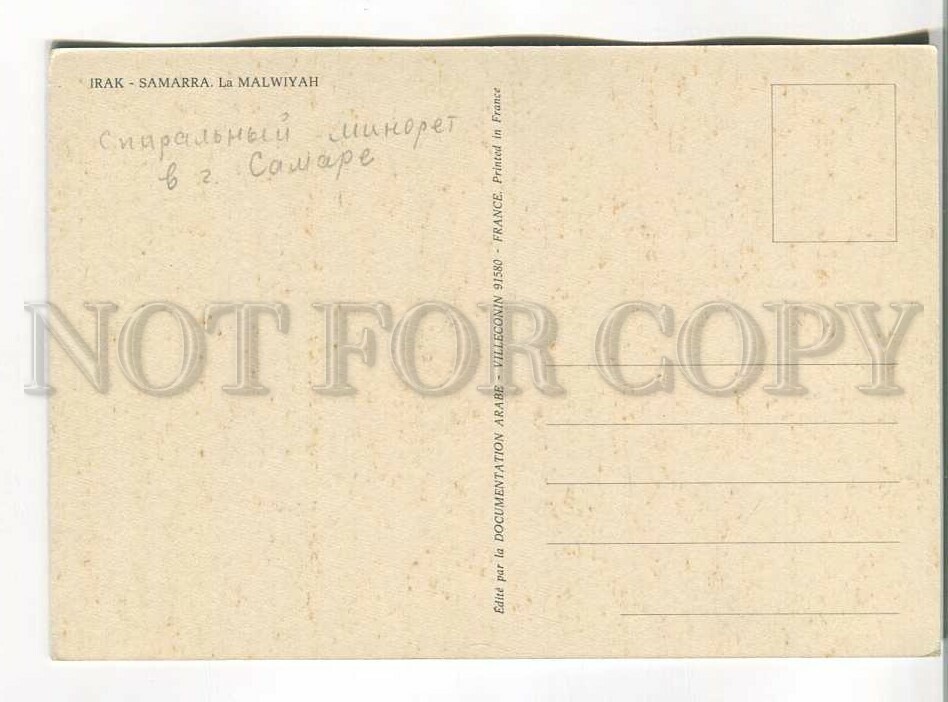 IRAK - SAMARRA. La MALWIYAH
Спиральный минорет
в г. Самаре
Édité par la DOCUMENTATION ARABE - VILLECONIN 91580 - FRANCE. Printed in France
NOT FOR COPY